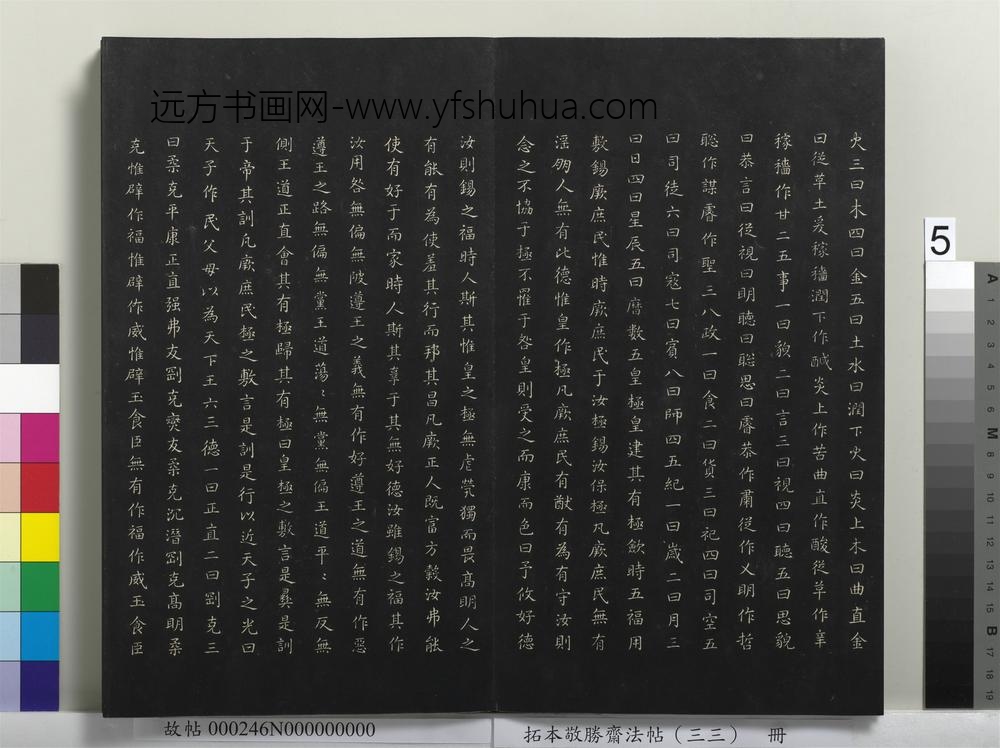 火三曰木四曰金五曰土水曰潤下火曰炎上木曰曲直金
曰從革土爰稼穡潤下作鹹炎上作苦曲直作酸從革作辛
稼穡作甘二五事一曰貌二曰言三曰視四曰聽五曰思貌
曰恭言曰從視曰明聽曰聡思曰睿恭作肅從作乂明作哲
聡作謀睿作聖三八政一曰食二曰貨三曰祀四曰司空五
曰司徒六曰司寇七曰賓八曰師四五紀一曰歲二曰月三
曰日四曰星辰五曰曆數五皇極皇建其有極歛時五福用
敷錫厥庶民惟時厥庶民于汝極錫汝保極凡厥庶民無有
淫朋人無有比德惟皇作極凡厥庶民有猷有為有守汝則
念之不協于極不罹于咎皇則受之而康而色曰予攸好德
汝則錫之福時人斯其惟皇之極無虐煢獨而畏髙明人之
有能有為使羞其行而邦其昌凡厥正人既富方穀汝弗能
使有好于而家時人斯其辜于其無好德汝雖錫之福其作
汝用咎無偏無陂遵王之義無有作好遵王之道無有作惡
遵王之路無偏無黨王道蕩〻無黨無偏王道平〻無反無
側王道正直會其有極歸其有極曰皇極之敷言是彝是訓
于帝其訓凡厥庶民極之敷言是訓是行以近天子之光曰
天子作民父母以為天下王六三德一曰正直二曰剛克三
曰柔克平康正直强弗友剛克燮友柔克沉潛剛克髙明柔
克惟辟作福惟辟作威惟辟玉食臣無有作福作威玉食臣
远方书画网-www.yfshuhua.com
故帖 000246N000000000
拓本敬勝齋法帖（三三） 冊
5
A 1 2 3 4 5 6 M 8 9 10 11 12 13 14 15 B 17 18 19